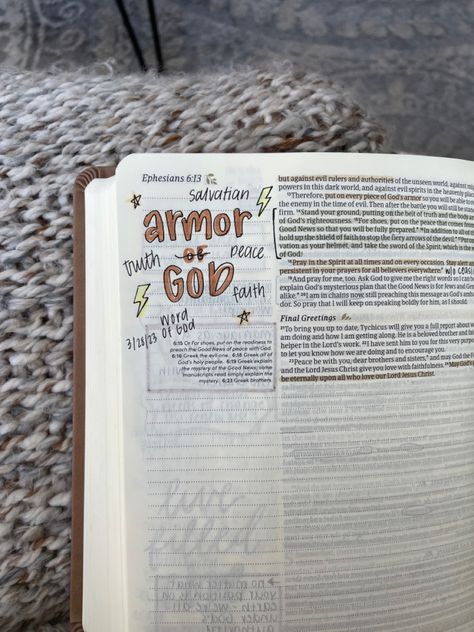 Ephesians 6:13
salvatian
armor
of
truth
peace
GOD
faith
word
of God
3/28/23
6:15 Or For shoes, put on the readiness to
preach the Good News of peace with God.
6:16 Greek the evil one. 6:18 Greek all of
God's holy people. 6:19 Greek explain
the mystery of the Good News; some
manuscripts read simply explain the
mystery. 6:23 Greek brothers.
but against evil rulers and authorities of the unseen world, against
powers in this dark world, and against evil spirits in the heavenly
Therefore, put on every piece of God's armor so you will be able
the enemy in the time of evil. Then after the battle you will still
firm. Stand your ground, putting on the belt of truth and the body
of God's righteousness. For shoes, put on the peace that comes from
Good News so that you will be fully prepared. In addition to all of
hold up the shield of faith to stop the fiery arrows of the devil.
vation as your helmet, and take the sword of the Spirit,
of God.
Pray in the Spirit at all times and on every occasion. Stay alert an
persistent in your prayers for all believers everywhere.
And pray for me, too. Ask God to give me the right words
explain God's mysterious plan that the Good News is for Jews and
alike. I am in chains now, still preaching this message as God's am
dor. So pray that I will keep on speaking boldly for him, as I should
Final Greetings
To bring you up to date, Tychicus will give you a full report about
am doing and how I am getting along. He is a beloved brother and
helper in the Lord's work. I have sent him to you for this very purpo
to let you know how we are doing and to encourage you.
Peace be with you, dear brothers and sisters, and may God the
and the Lord Jesus Christ give you love with faithfulness. May God's
be eternally upon all who love our Lord Jesus Christ.